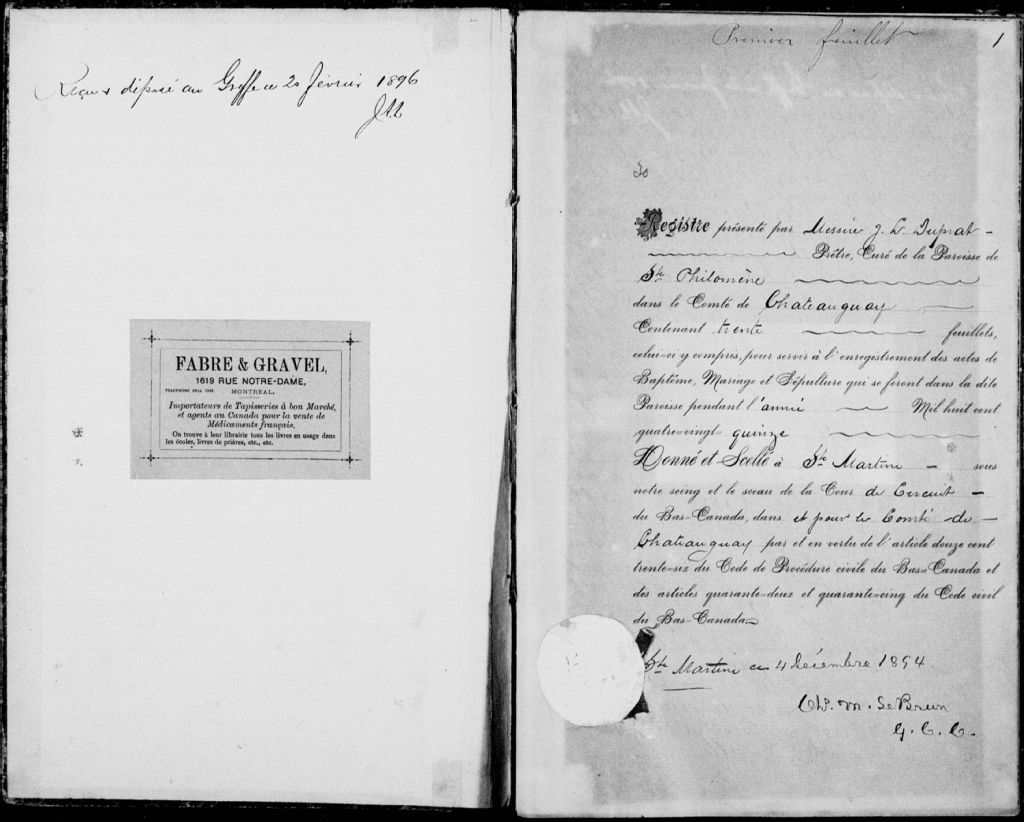 Reçu & déposé au Greffe ce 20 février 1896
FABRE & GRAVEL,
1619 RUE NOTRE-DAME,
TELEPHONE BELL
MONTREAL.
Importateurs de Tapisseries à bon Marché,
et agents au Canada pour la vente de
Médicaments français.
On trouve à leur librairie tous les livres en usage dans
les écoles, livres de prières, etc., etc.
Premier feuillet 1
30
Registre présenté par Messire J. L. Duprat -
Prêtre, Curé de la Paroisse de
Ste Philomène
dans le Comté de Chateauguay
Contenant trente feuillets,
celui=ci y compris, pour servir à l'enregistrement des actes de
Baptême, Mariage et Sépulture qui se feront dans la dite
Paroisse pendant l'année Mil huit cent
quatre=vingt quinze
Donné et Scellé à Ste Martine - sous
notre seing et le sceau de la Cour de Circuit -
du Bas=Canada, dans et pour le Comté de -
Chateauguay par et en vertu de l'article douze cent
trente=six du Code de Procédure civile du Bas=Canada et
des articles quarante=deux et quarante=cinq du Code civil
du Bas=Canada
Ste Martine ce 4 Décembre 1894.
Ch. M. LeBrun
G. C. C.